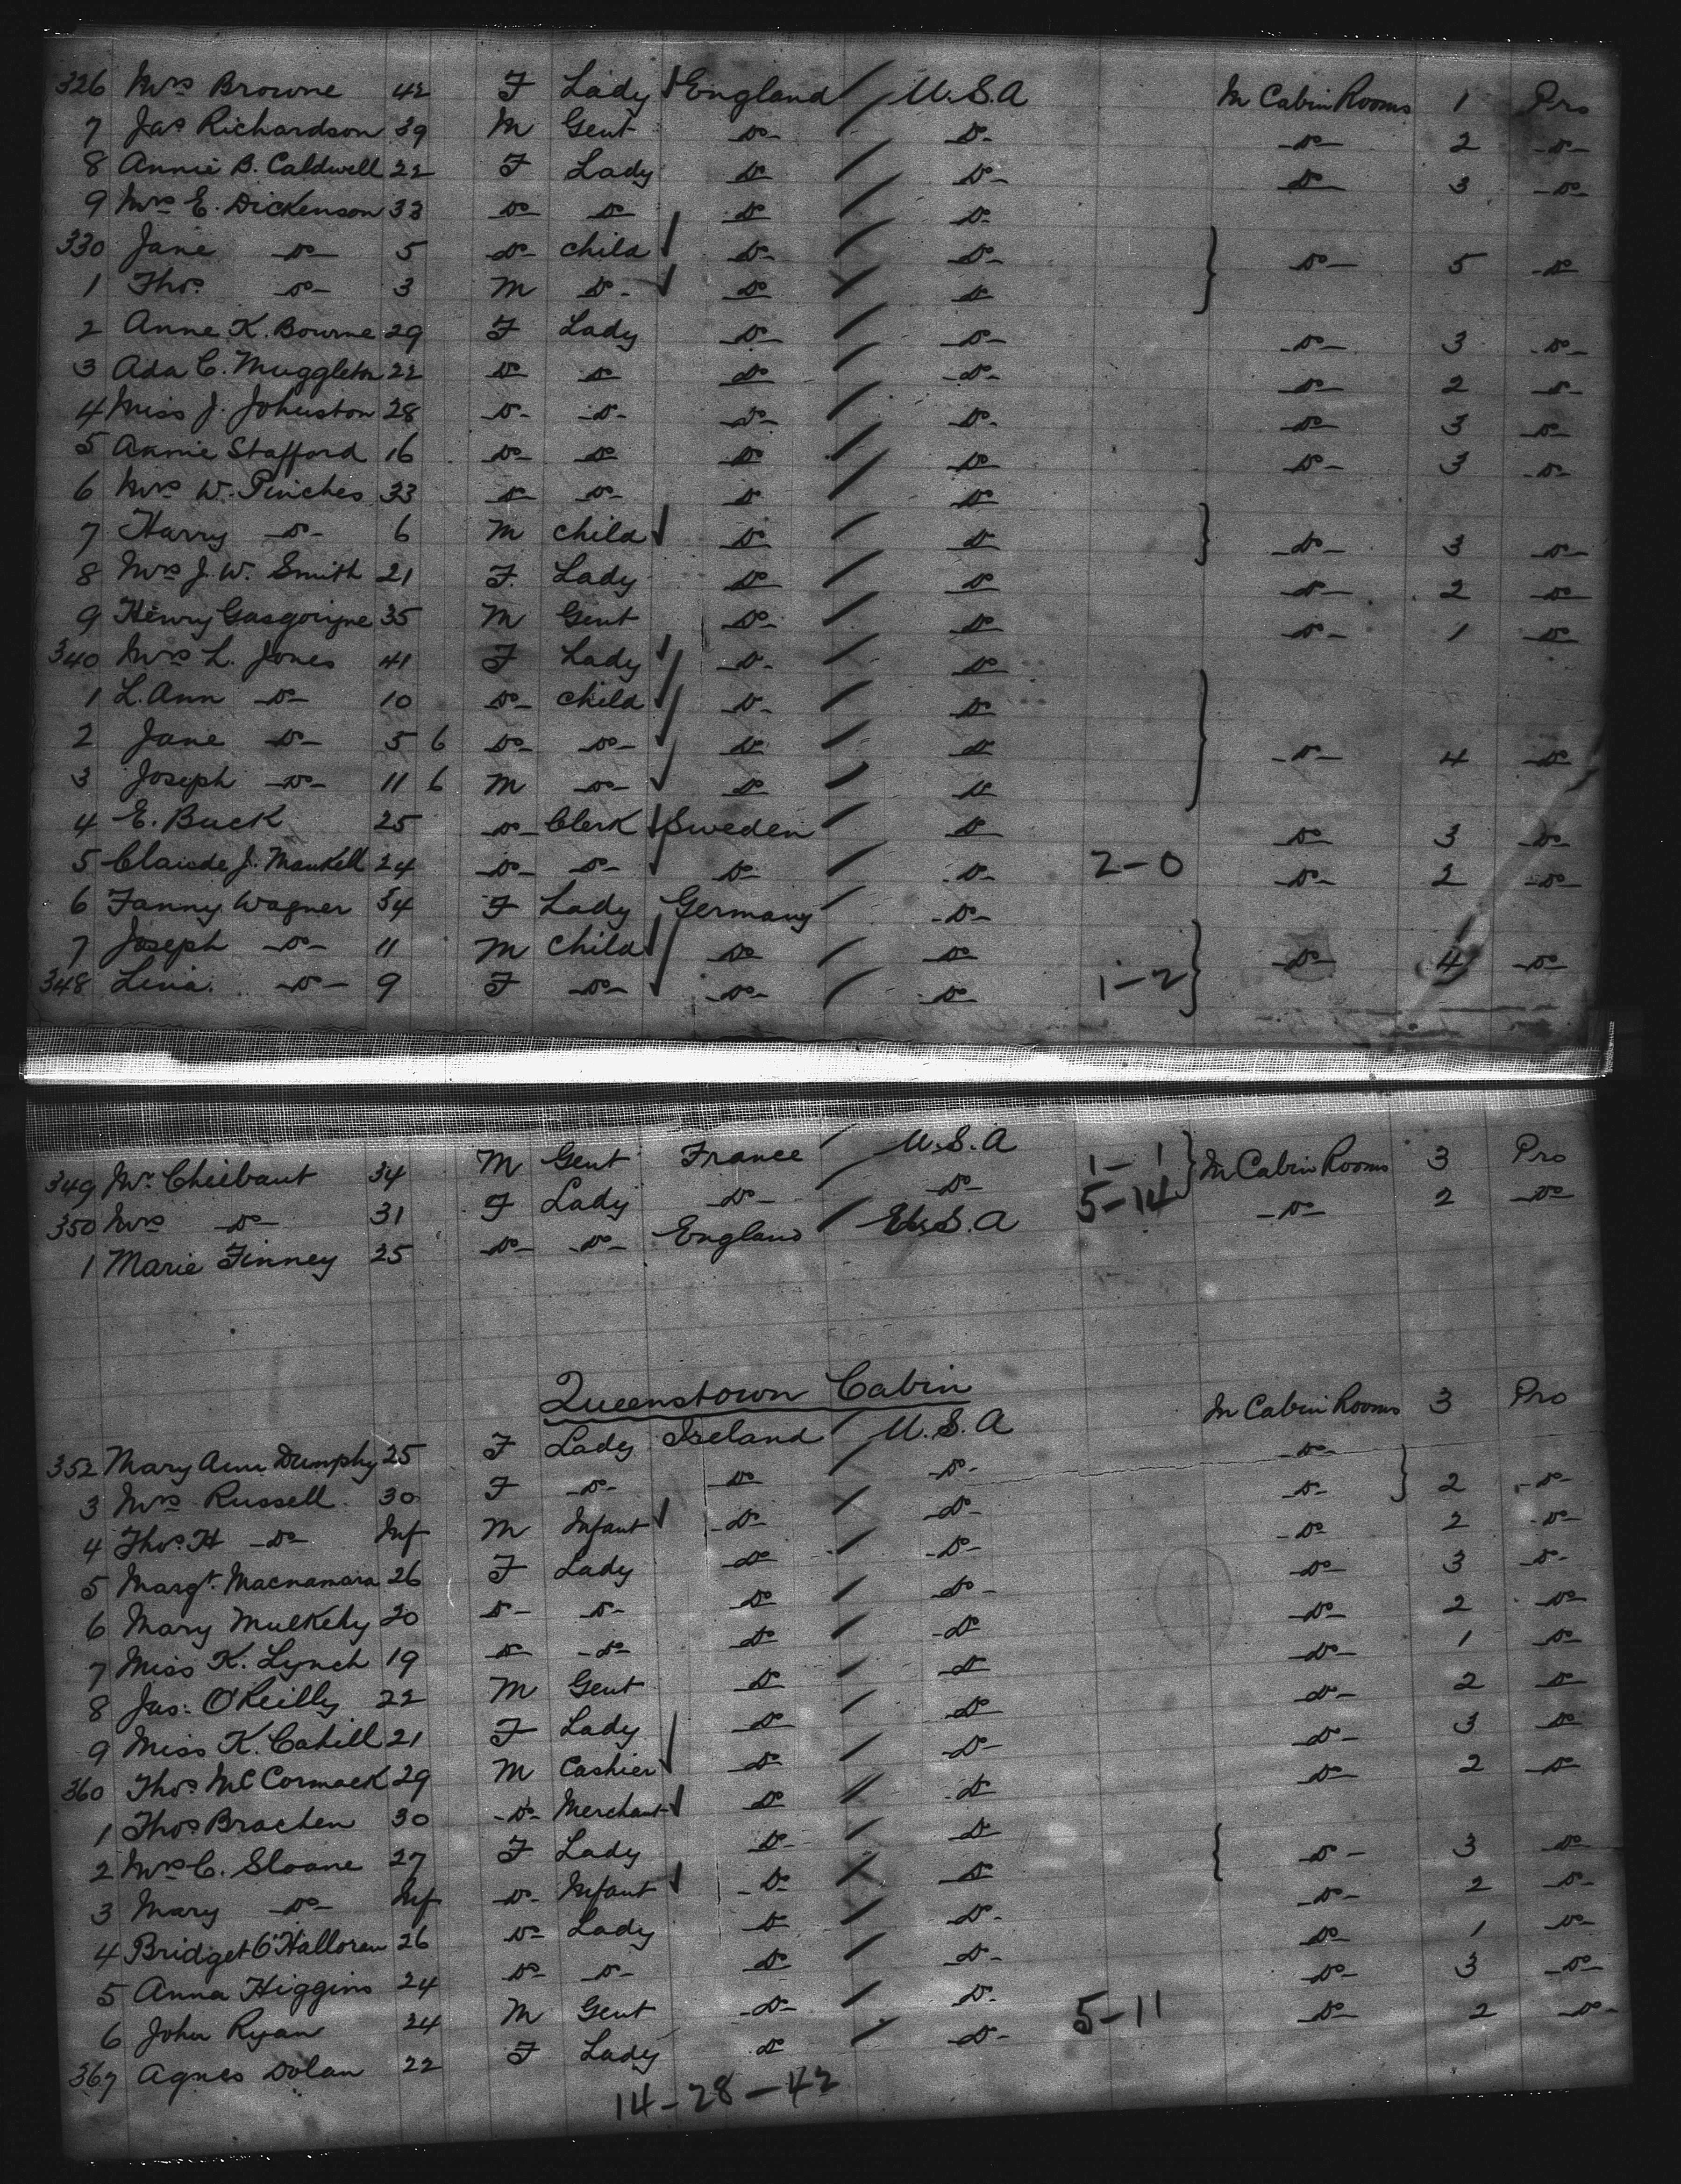 326 Mrs Browne 42 F Lady England / U.S.A In Cabin Rooms 1 Pro
7 Jas Richardson 39 M Gent -Do- / Do- -Do- 2 -Do-
8 Annie B. Caldwell 22 F Lady Do / Do- Do 3 -Do-
9 Mrs E. Dickenson 33 Do Do Do / Do-
330 Jane -Do- 5 Do- child Do- / Do- } -Do- 5 -Do
1 Thos Do- 3 M Do- Do Do
2 Anne K. Bourne 29 F Lady Do- / Do- -Do- 3 -Do-
3 Ada C. Muggleton 22 Do Do Do / -Do- Do- 2 -Do-
4 Miss J. Johnston 28 Do- -Do- Do- / Do- Do- 3 Do-
5 Annie Stafford 16 Do- Do Do / Do Do- 3 -Do-
6 Mrs W. Pinches 33 Do Do- Do / Do
7 Harry -Do- 6 M child Do / Do } -Do- 3 Do-
8 Mrs J. W. Smith 21 F. Lady Do / Do Do- 2 Do
9 Henry Gasgoigne 35 M Gent Do- / Do Do- 1 Do
340 Mrs L. Jones 41 F Lady -Do- / Do
1 L. Ann Do- 10 Do- child Do- / Do
2 Jane Do- 5 6 Do- Do- Do / Do } -Do- 4 Do
3 Joseph -Do- 11 6 M Do- Do / Do
4 E. Buck 25 Do- Clerk Sweden / Do Do 3 Do-
5 J. 24 Do- Do- Do- / Do- 2-0 Do- 2 Do
6 Fanny Wagner 34 F Lady Germany / -Do-
7 Joseph -Do- 11 M child Do / Do } Do- 4 Do-
348 Lina. -Do- 9 F -Do- -Do- / Do 1-2
349 Mr. Chiebaut 34 M Gent France / U.S.A 1-1 } In Cabin Rooms 3 Pro
350 Mrs Do 31 F Lady -Do- / -Do- 5-14 -Do- 2 -Do
1 Marie Finney 25 -Do- -Do- England / U.S.A
Queenstown Cabin
352 Mary Ann Dumphy 25 F Lady Ireland / U.S.A In Cabin Rooms 3 Pro
3 Mrs Russell 30 F -Do- Do / -Do- Do-
4 Thos. H -Do Inf M Infant -Do- / -Do Do- } 2 -Do-
5 Margt. Macnamara 26 F Lady Do / -Do- -Do 2 -Do-
6 Mary Mulkehy 20 Do- Do- Do / Do- Do 3 -Do-
7 Miss K. Lynch 19 Do -Do Do / -Do Do 2 Do
8 Jas. O'Reilly 22 M Gent Do / Do Do- 1 Do
9 Miss K. Cahill 21 F Lady Do / Do Do- 2 Do
360 Thos McCormack 29 M Cashier Do / -Do- Do- 3 Do
1 Thos Brachen 30 -Do- Merchant Do / Do Do 2 Do-
2 Mrs C. Sloane 27 F Lady Do- / Do
3 Mary Do- Inf Do- Infant -Do- Do { Do- 3 Do
4 Bridget O'Halloran 26 Do Lady Do / Do- Do- 2 Do-
5 Anna Higgins 24 Do- Do- Do / Do- Do 1 Do-
6 John Ryan 24 M Gent -Do- / Do- Do- 3 -Do-
367 Agnes Dolan 22 F Lady Do / Do- 5-11 Do 2 -Do-
14-28-42